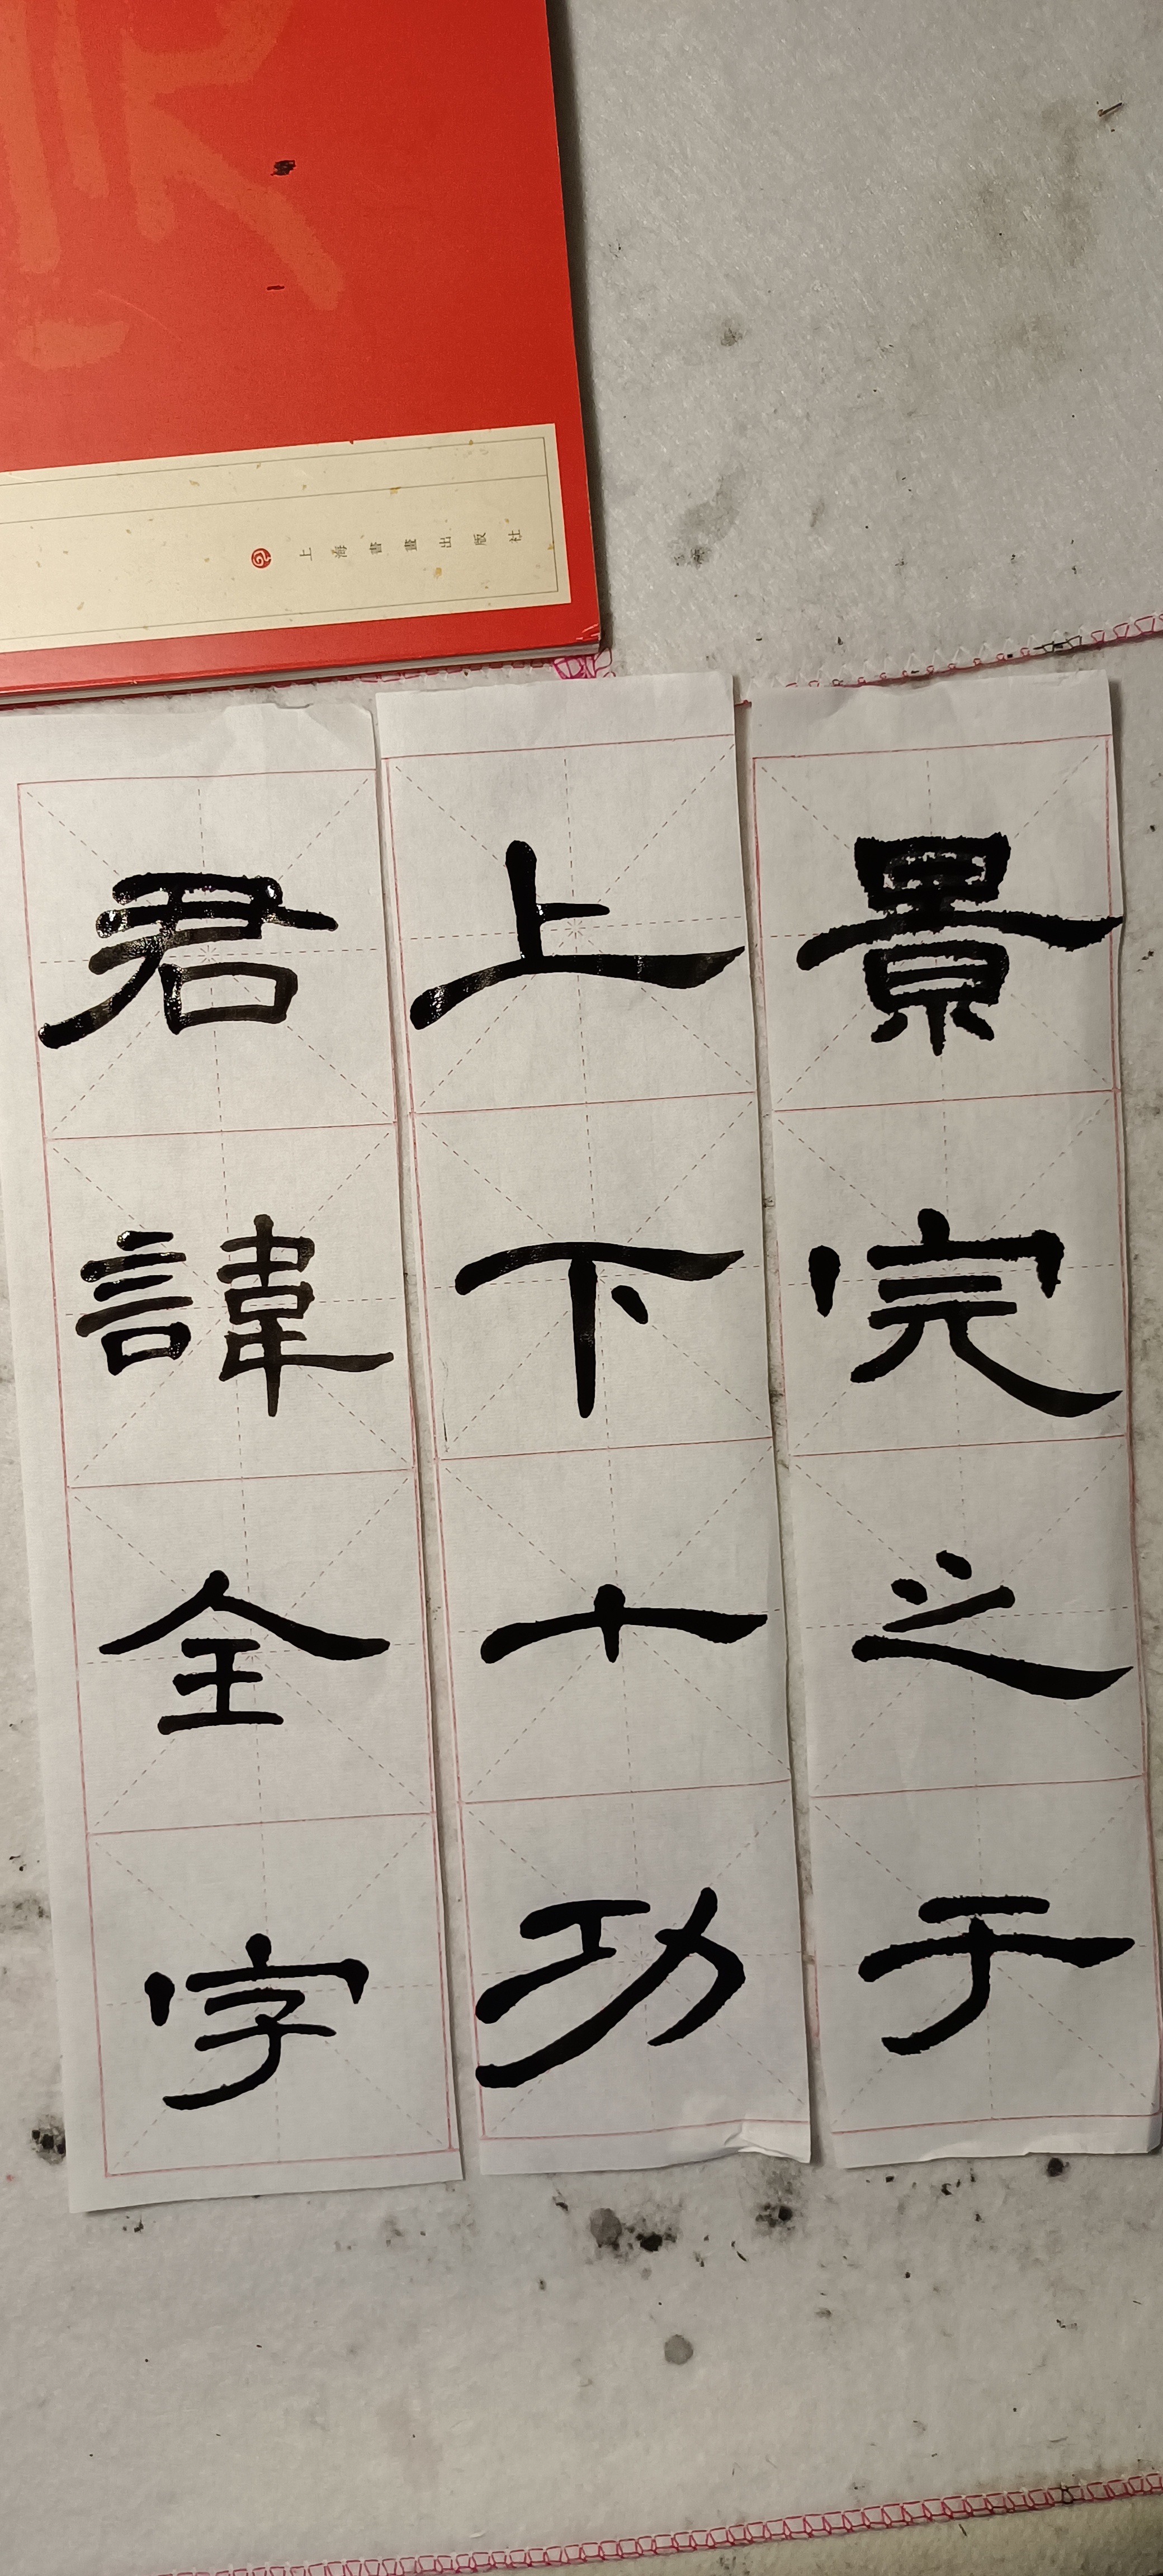 上海書畫出版社
景完之于
上下十功
君諱全字